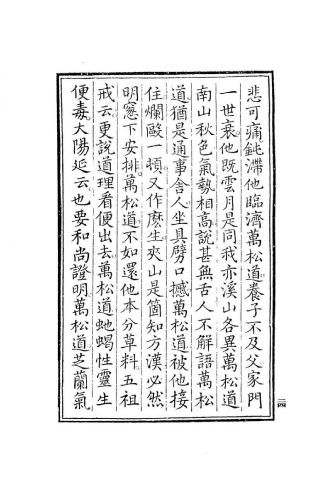 悲可痛鈍滯他臨濟萬松道養子不及父家門
一世衰他既雲月是同我亦溪山各異萬松道
南山秋色氣勢相高說甚無舌人不解語萬松
道猶是通事舍人坐具劈口摵萬松道被他接
住爛毆一頓又作麽生夾山是箇知方漢必然
明窻下安排萬松道不如還他本分草料五祖
戒云更說道理看便出去萬松道虵蝎性靈生
便毒太陽延云也要和尚證明萬松道芝蘭氣
二四